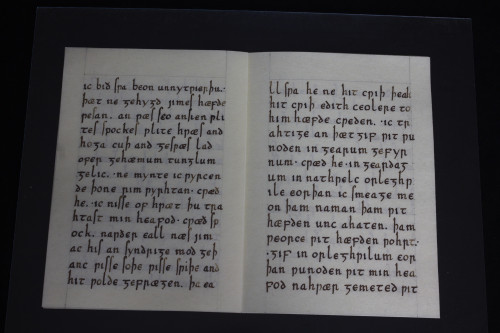 ic bið sƿa beon unnytƿierþu.
þæt ne gehygd jimes hæfde
ƿesan. an ƿæs seo ansien ƿli
tes spockes ƿlite hƿæs and
hoga cuþ and gesƿæs lad
ofer gehæmum tunglum
gelic. ne mynte ic ƿyrcen
de þone rim ƿyrhtan. cƿæð
he. ic nisse of hƿæt þu tra
htast min heafod. cƿæð sp
ock. naƿðer eall næs jim
ac his an syndrige mod geþ
anc ƿisse soþe ƿisse sƿiþe and
hit ƿolde gefrægen. þa ea
ll sƿa he ne hit cƿiþ þeah
hit cƿiþ edith ceolere to
him hæfde cƿeden. ·ic tr
ahtige an þæt gif ƿit ƿu
noden in gearum gefyr
num· cƿæð he· in geardag
um in nathƿelc orleghƿ
ile eorþan ic smeage me
on þam naman þam ƿit
hæfden unc ahaten. þam
ƿeorce ƿit hæfden ƿohrt.
·gif in orleghƿilum eor
þan ƿunoden ƿit min hea
fod nahƿær gemeted ƿit